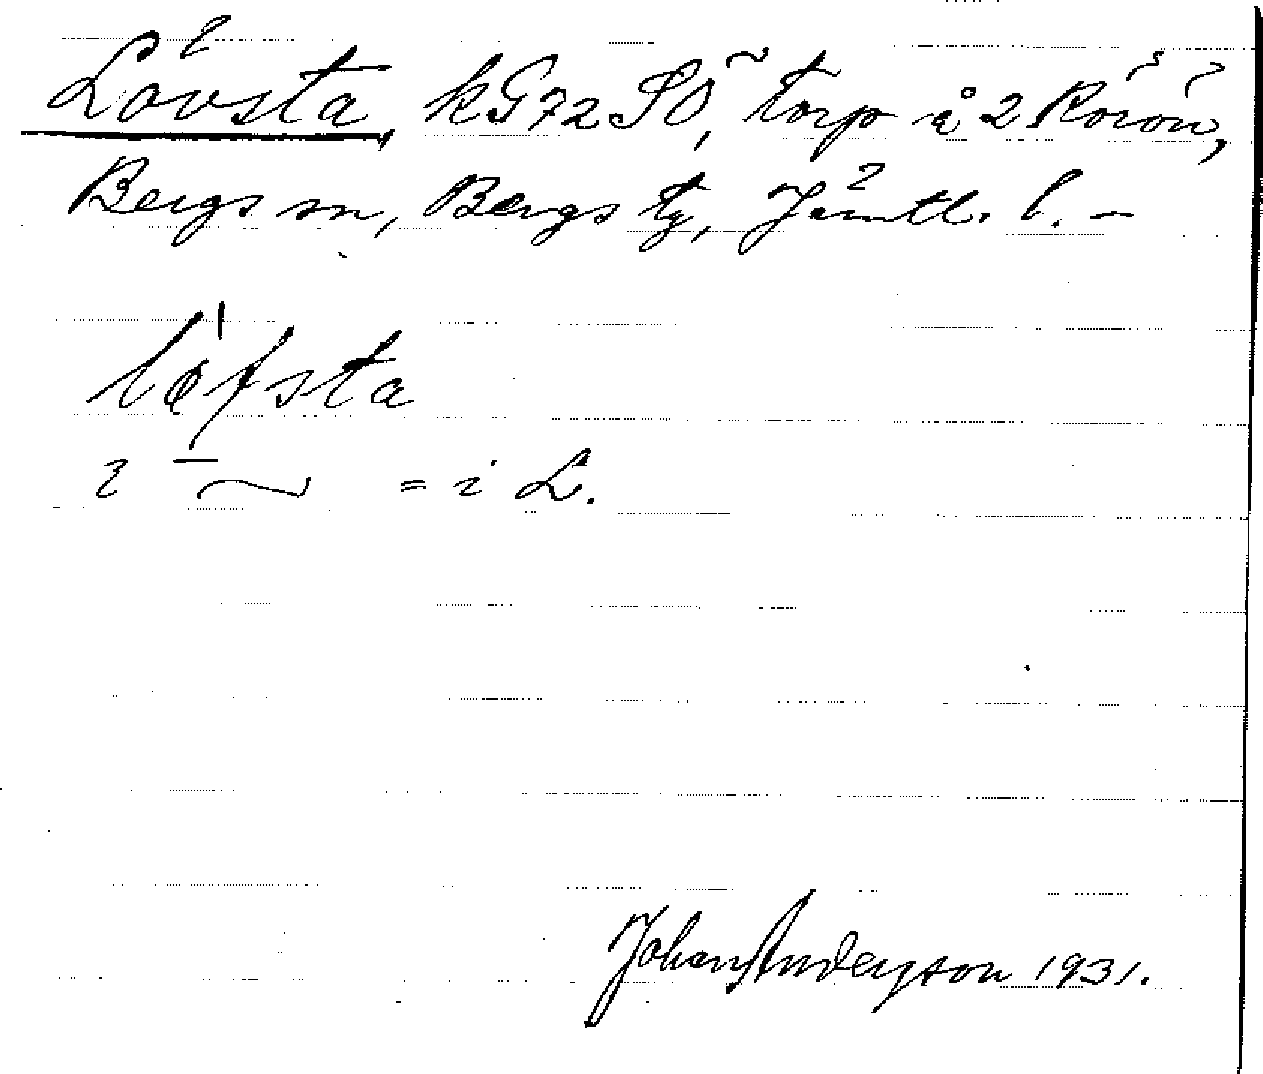 Lövsta, kG72SÖ, torp å 2 Rörön,
Bergs sn, Bergs tg, Jämtl. l. –
löfsta
i ~ = i L.
Johan Anderson 1931.